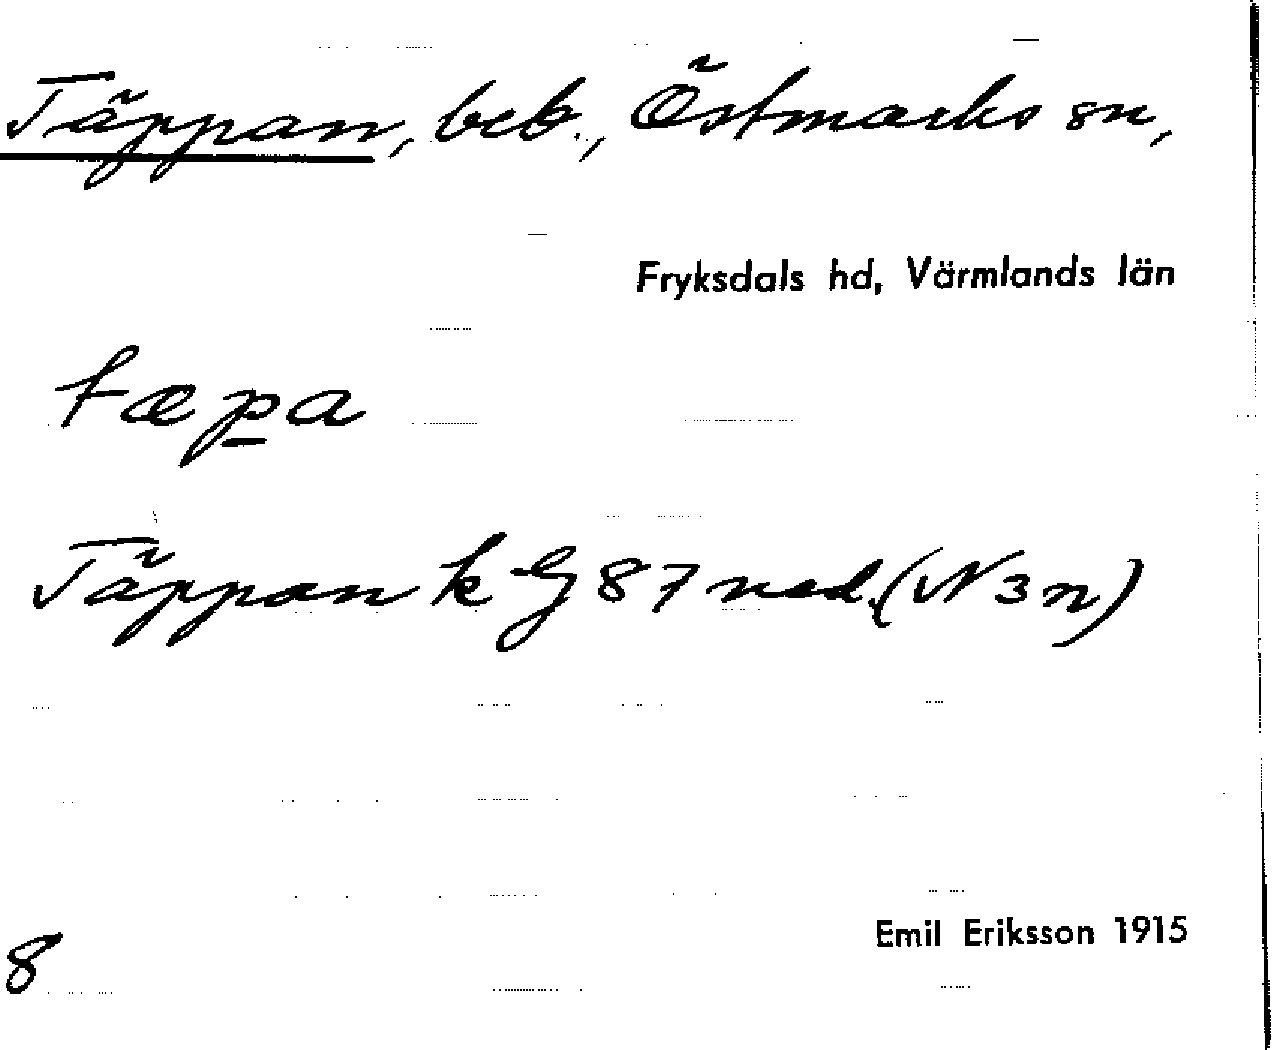 Täppan, beb., Östmarks sn,
Fryksdals hd, Värmlands län
tæpa
Täppan k G 87 ned. (N 3 n)
Emil Eriksson 1915
8